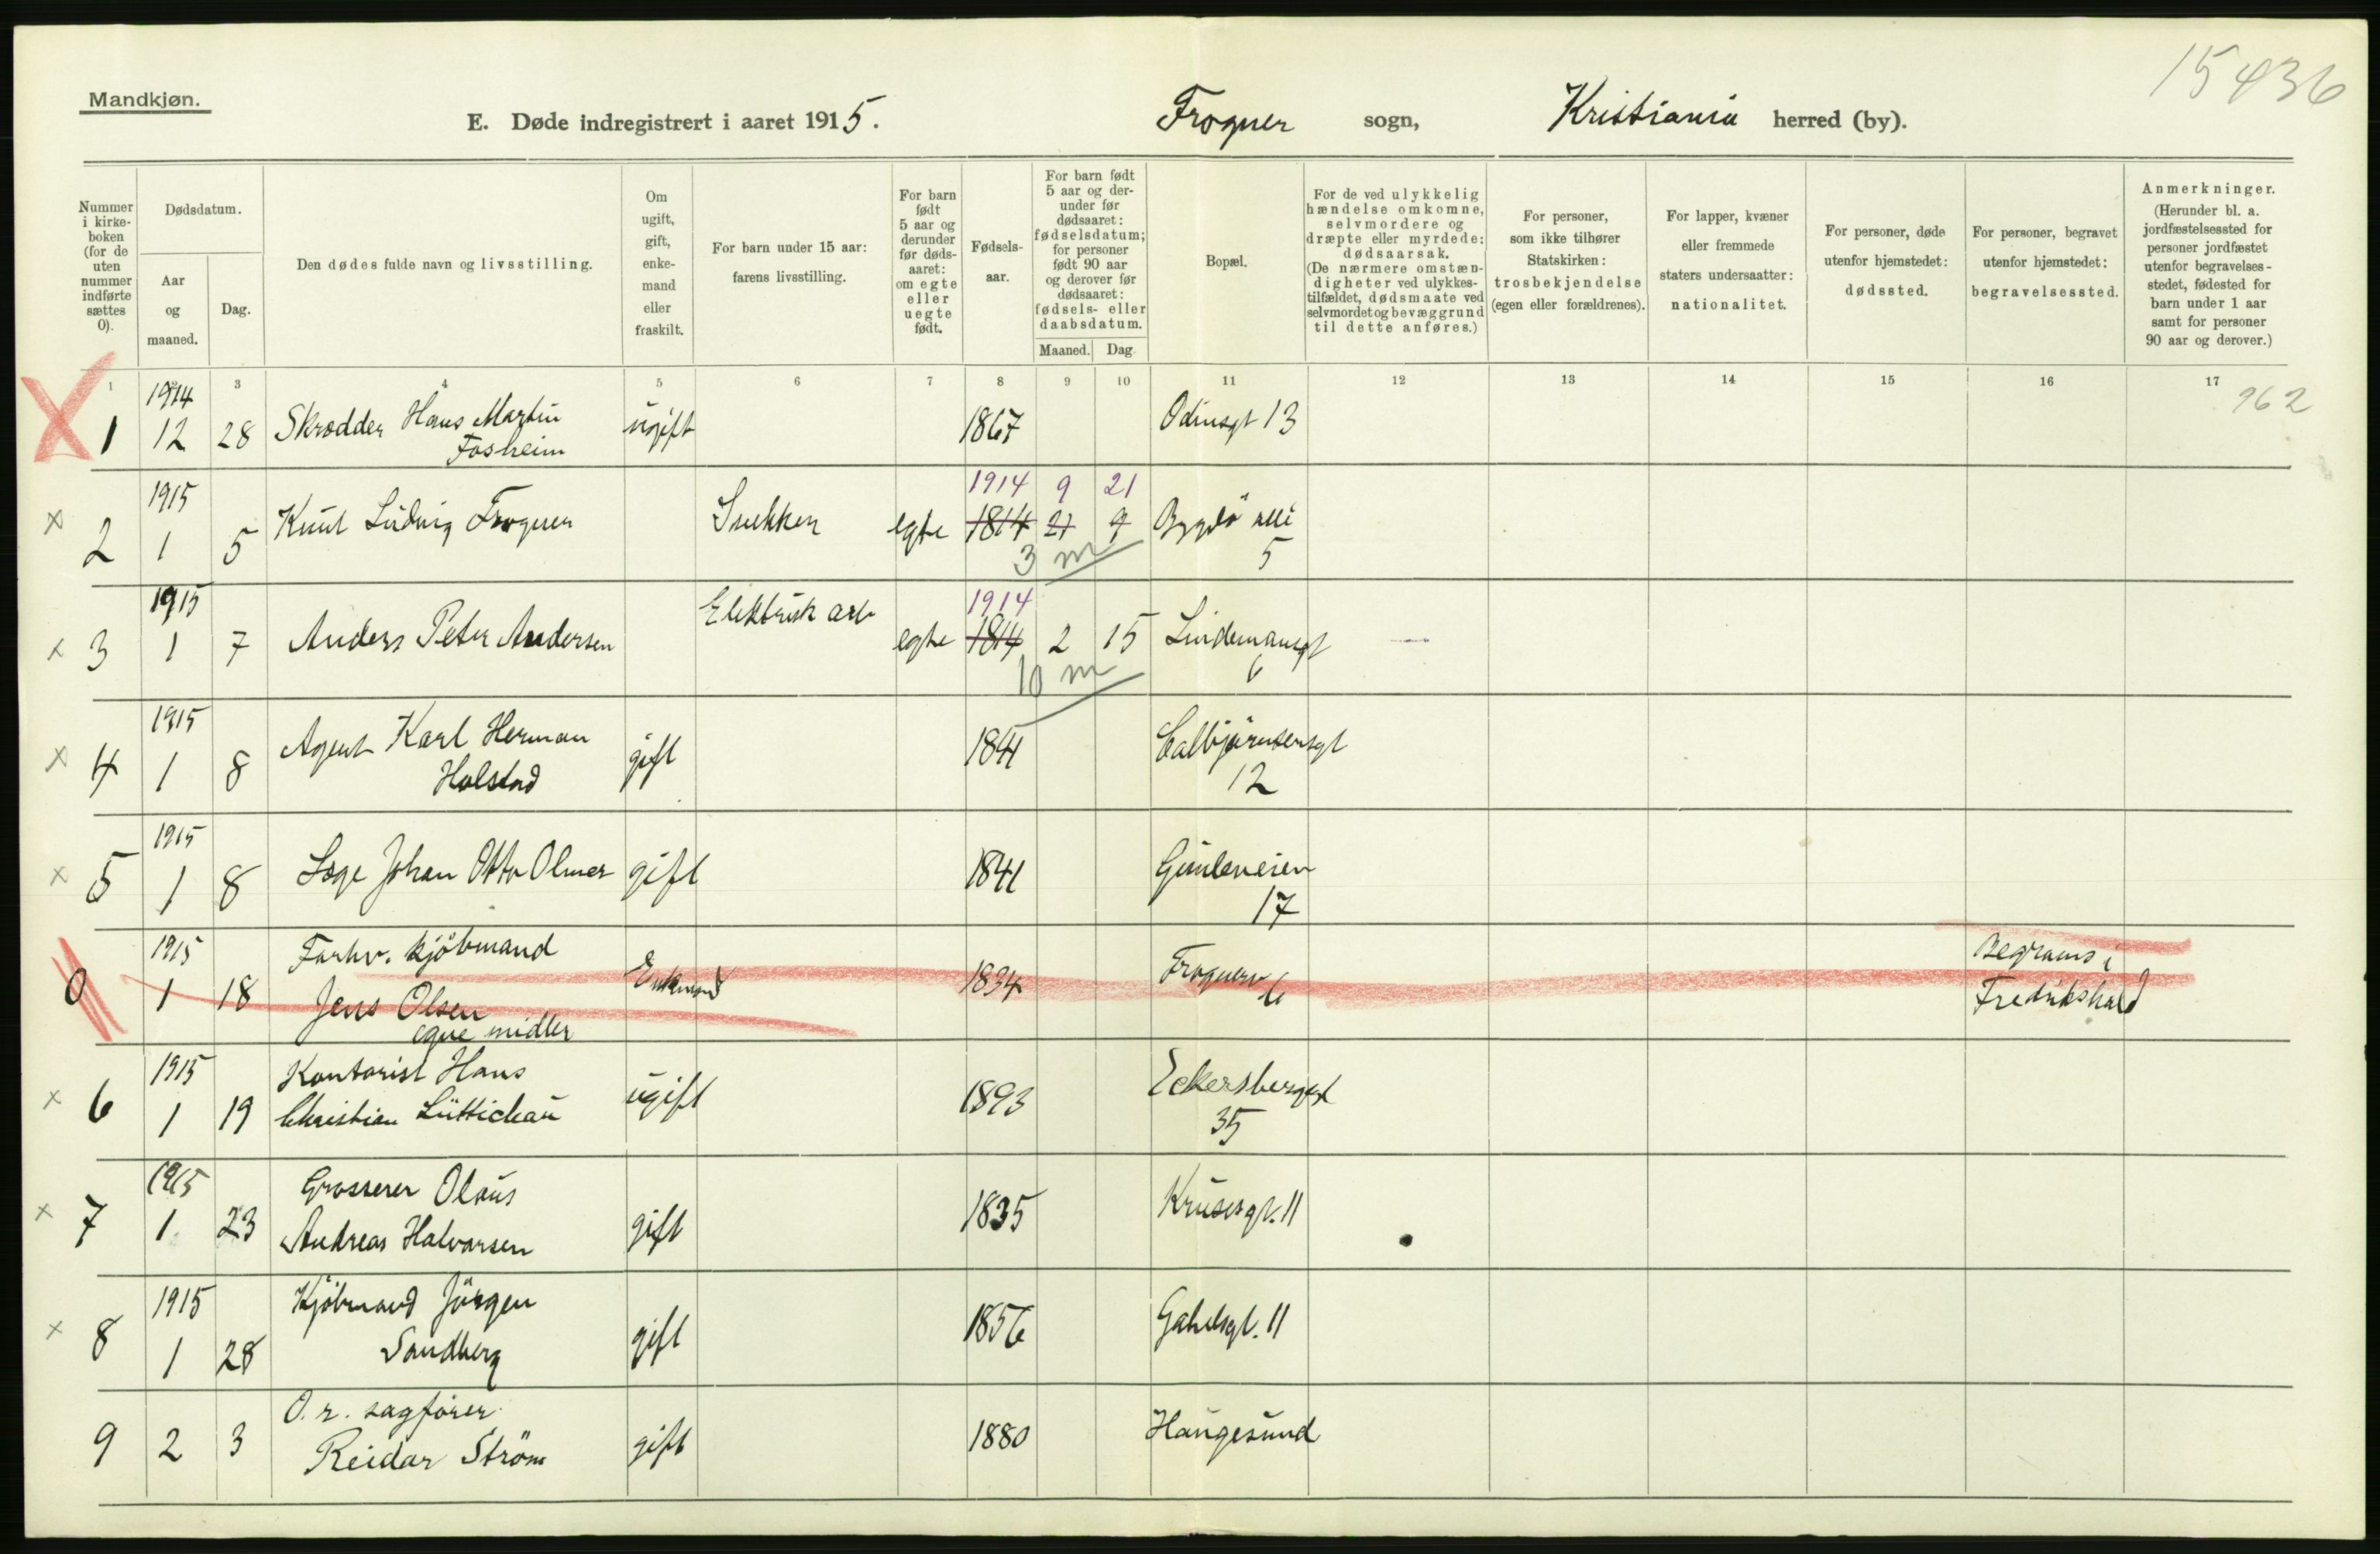 15436
Mandkjøn.
E. Døde indregistrert i aaret 1915. Frogner sogn, Kristiania herred (by).
Nummer i kirke- boken (for de uten nummer indførte sættes 0).
Dødsdatum.
Aar og maaned.
Dag.
Den dødes fulde navn og livsstilling.
Om ugift, gift, enke- mand eller fraskilt.
For barn under 15 aar: farens livsstilling.
For barn født 5 aar og derunder før døds- aaret: om egte eller uegte født.
Fødsels- aar.
For barn født 5 aar og der- under før dødsaaret: fødselsdatum; for personer født 90 aar og derover før dødsaaret: fødsels- eller daabsdatum.
Maaned. Dag
Bopæl.
For de ved ulykkelig hændelse omkomne, selvmordere og dræpte eller myrdede: dødsaarsak. (De nærmere omstæn- digheter ved ulykkes- tilfældet, dødsmaate ved selvmordet og bevæggrund til dette anføres.)
For personer, som ikke tilhører Statskirken: trosbekjendelse (egen eller forældrenes).
For lapper, kvæner eller fremmede staters undersaatter: nationalitet.
For personer, døde utenfor hjemstedet: dødssted.
For personer, begravet utenfor hjemstedet: begravelsessted.
Anmerkninger. (Herunder bl. a. jordfæstelsessted for personer jordfæstet utenfor begravelses- stedet, fødested for barn under 1 aar samt for personer 90 aar og derover.)
1 3 4 5 6 7 8 9 10 11 12 13 14 15 16 17
1914
1 12 28 Skrædder Hans Martin Fosheim ugift 1867 Odinsgt 13 962
1915 1914 9 21
2 1 5 Knut Ludvig Frogner Snekker egte 1814 21 9 Bygdö alle 5
3 m
1915 1914
3 1 7 Anders Peter Andersen Elektrisk arb egte 1814 2 15 Lindemansgt 6
10 m
1915
4 1 8 Agent Karl Herman Holstad gift 1841 12
1915
5 1 8 Læge Johan Otto Olmer gift 1841 Gimleveien 17
1915
0 1 18 Forhv. kjöbmand Jens Olsen egne midler Enkemand 1834 Frognerv 6 Begraves i Fredrikshald
1915
6 1 19 Kontorist Hans Christian Lüttichau ugift 1893 Eckersbergsgt 35
1915
7 1 23 Grosserer Olaus Andreas Halvorsen gift 1835 Krusesgt. 11
1915
8 1 28 Kjöbmand Jörgen Sandberg gift 1856 Gabelsgt. 11
9 2 3 O.r. sagförer Reidar Ström gift 1880 Haugesund